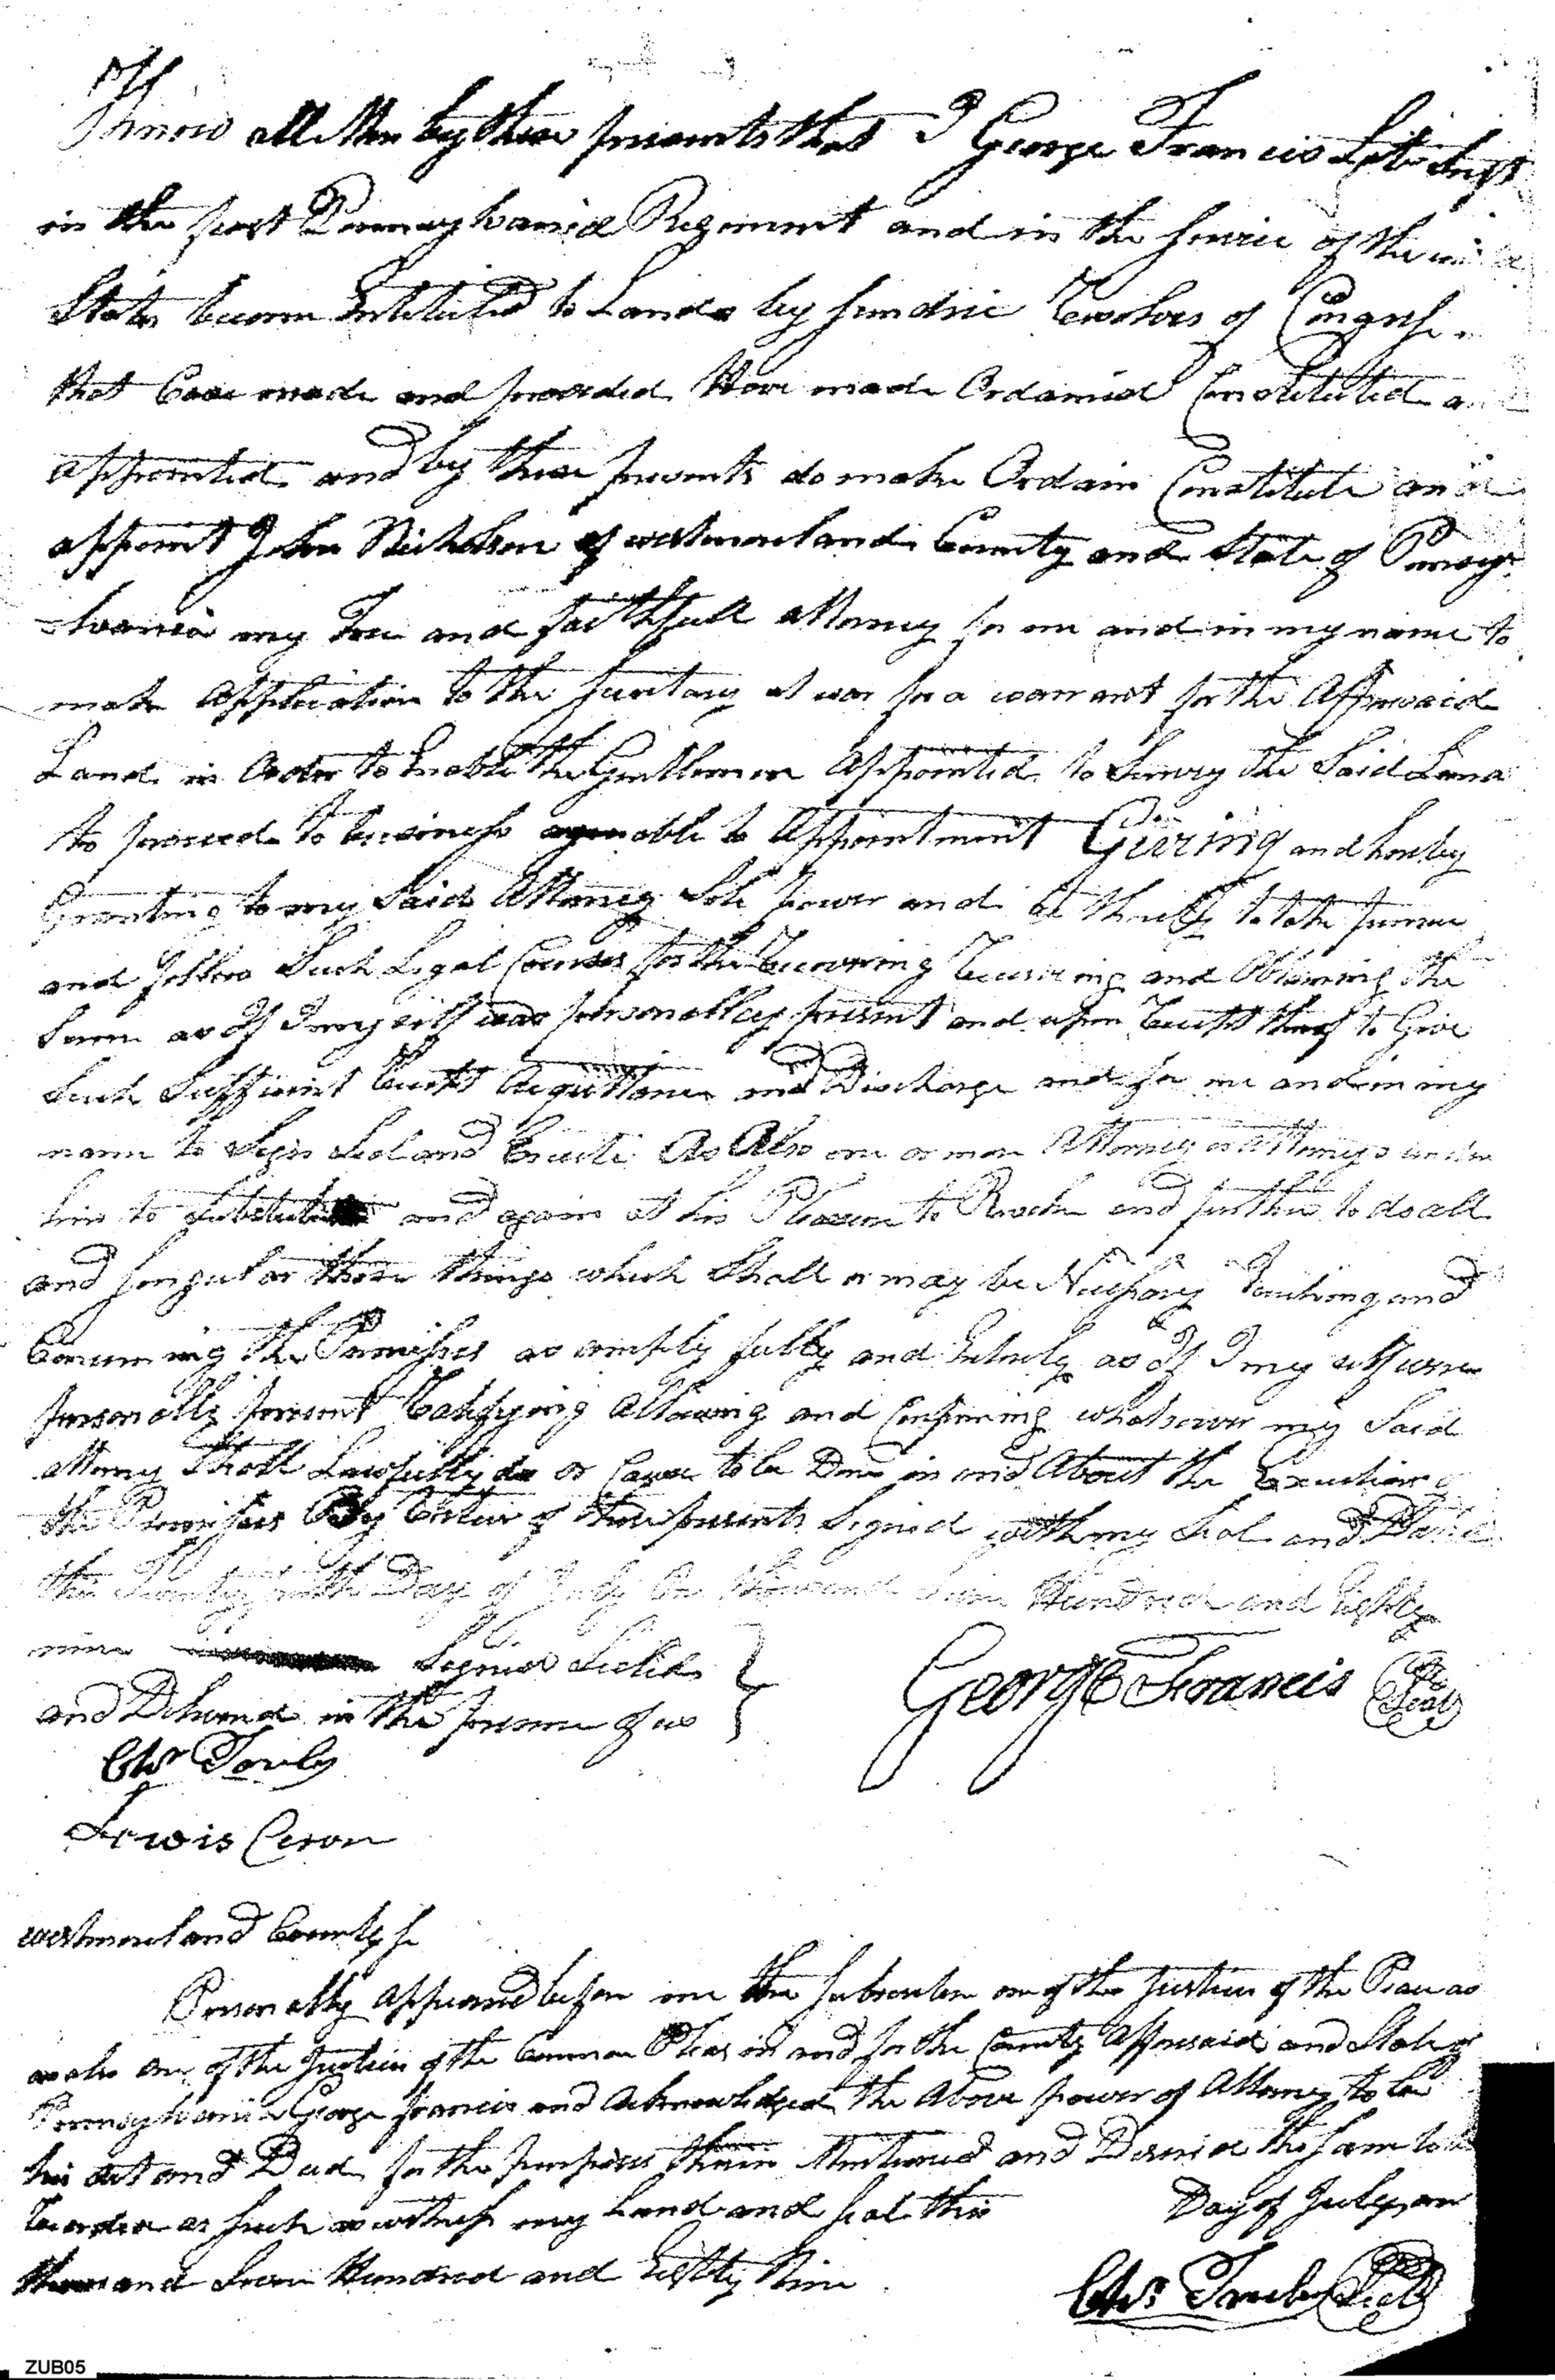 Know all Men by these presents that I George Francis Late
in the first Pennsylvania Regiment and in the service of the
States become Intituled to Lands by sundrie Resolves of Congress
that Ware made and provided Have made Ordained Constituted and
appointed and by these presents do make Ordain Constitute and
appoint John Nicholson of westmoreland County and State of Pennsyl
-vania my True and faithfull attorney for me and in my name to
make Application to the at war for a warrant for the Afforesaid
Land in Order to Enable the Gentlemen Appointed to Survey the Said Land
to proceed to business agreeable to Appointment Giving and hereby
Granting to my Said Attorney Sole power and to take pursue
and follow Such Legal Courses for the Recovering Receiving and Obtaining the
Same as If I my self was personalley present and upon Receipt thereof to Give
Such Sufficient Receipt Acquittance and Discharge and for me and in my
name to Sign Seal and As Also one or more Attorney or attorneys under
him to and again at his Pleasure to Revoke and further to do all
and singular those things which Shall or may be Nessary Touching and
Concerning the Premisses as amply fully and Intirely as If I my self were
personally present Ratifying Allowing and Confirming whatsoever my Said
attorney Shall Lawfully do or Cause to be Done in and About the Execution of
the Premises By Vertue of these presents Signed with my Seal and Dated
this Twenty Day of July One thousand Seven Hundred and Eighty
nine Signed Sealed
and Delivered in the presence of us
George Francis
Seal
Chr Truby
Lewis Ceron
westmoreland County Ss
Personally Appeared before me the Subscriber one of the Justices of the Peace as
as also one of the Justices of the Common Pleas in and for the County Afforesaid and State of
Pennsylvania George Francis and Acknowledged the Above power of Attorney to be
his act and Deed for the purposes therein Mentioned and Desired the Same to be
Recorded as Such as witness my hand and seal this Day of July one
thousand Seven Hundred and Eighty Nine
Chr Truby Seal
ZUB05